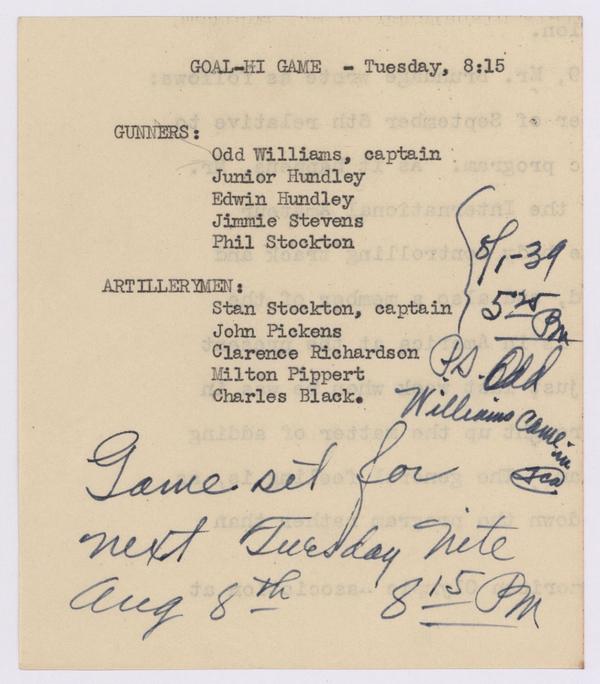 GOAL-HI GAME - Tuesday, 8:15
GUNNERS:
Odd Williams, captain
Junior Hundley
Edwin Hundley
Jimmie Stevens
Phil Stockton
ARTILLERYMEN:
Stan Stockton, captain
John Pickens
Clarence Richardson
Milton Pippert
Charles Black.
8/1-39
5 25
Pm
P.S. Odd
Williams came
in
Game set for
next Tuesday Nite
Aug 8th 8 15 Pm